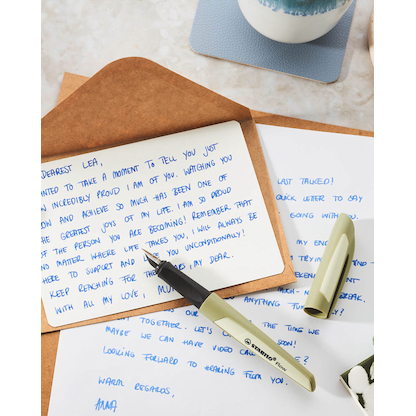 DEAREST LEA,
NTED TO TAKE A MOMENT TO TELL YOU JUST
INCREDIBLY PROUD I AM OF YOU. WATCHING YOU
OW AND ACHIEVE SO MUCH HAS BEEN ONE OF
HE GREATEST JOYS OF MY LIFE. I AM SO PROUD
OF THE PERSON YOU ARE BECOMING! REMEMBER THAT
NO MATTER WHERE LIFE TAKES YOU, I WILL ALWAYS BE
HERE TO SUPPORT AND YOU UNCONDITIONALLY!
KEEP REACHING FOR THE , MY DEAR.
WITH ALL MY LOVE,
LAST TALKED!
QUICK LETTER TO SAY
GOING WITH YOU.
MY END
TRYING
BREAK.
ANYTHING FUN
TOGETHER. THE TIME WE
MAYBE WE CAN HAVE VIDEO
LOOKING FORWARD TO HEARING FROM YOU.
WARM REGARDS,
ANNA
STABILO